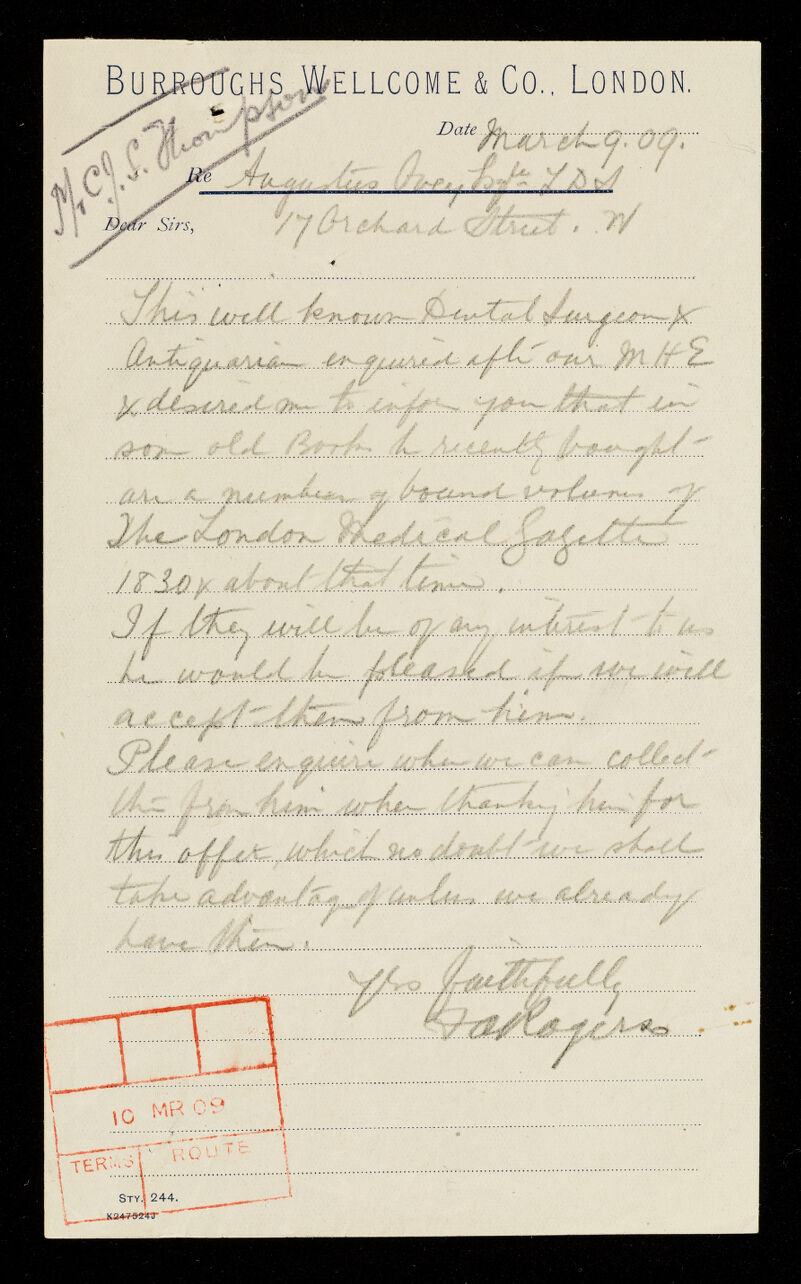 BURROUGHS WELLCOME & CO., LONDON.
Mr C. J. S. Thompson
Date March 9. 09.
Re Augustus Esqre L D S
Dear Sirs, 17 Orchard Street. W
This well known Dental Surgeon &
Antiquarian enquired after our M H E
& desired me to inform you that in
some old Books he recently bought
are a number of bound volumes of
The London Medical Gazette
1830 & about that time.
If they will be of any interest to us
he would be pleased if we will
accept them from him.
Please enquire when we can collect
them from him when thanking him for
this offer, which no doubt we shall
take advantage of unless we already
have them.
Yrs faithfully
Rogers
10 MR 09
TERMS ROUTE
STY. 244.
K247524J